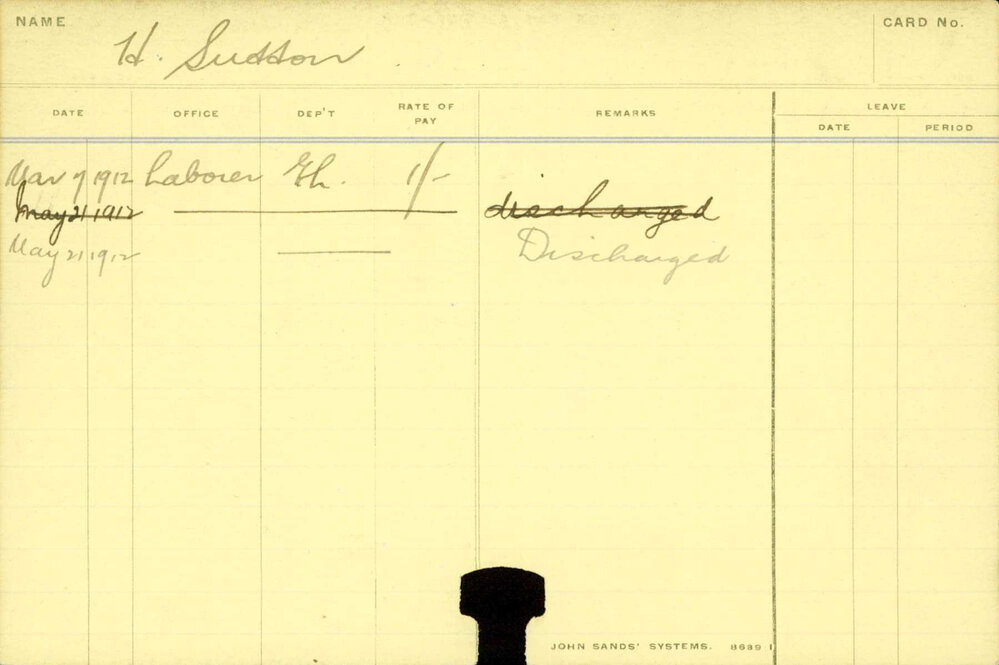 NAME H. Sutton CARD No.
DATE OFFICE DEP'T RATE OF PAY REMARKS LEAVE
DATE PERIOD
Mar 7 1912 Laborer 1/-
May 21 1912 discharged
May 21 1912 Discharged
JOHN SANDS' SYSTEMS. 8689